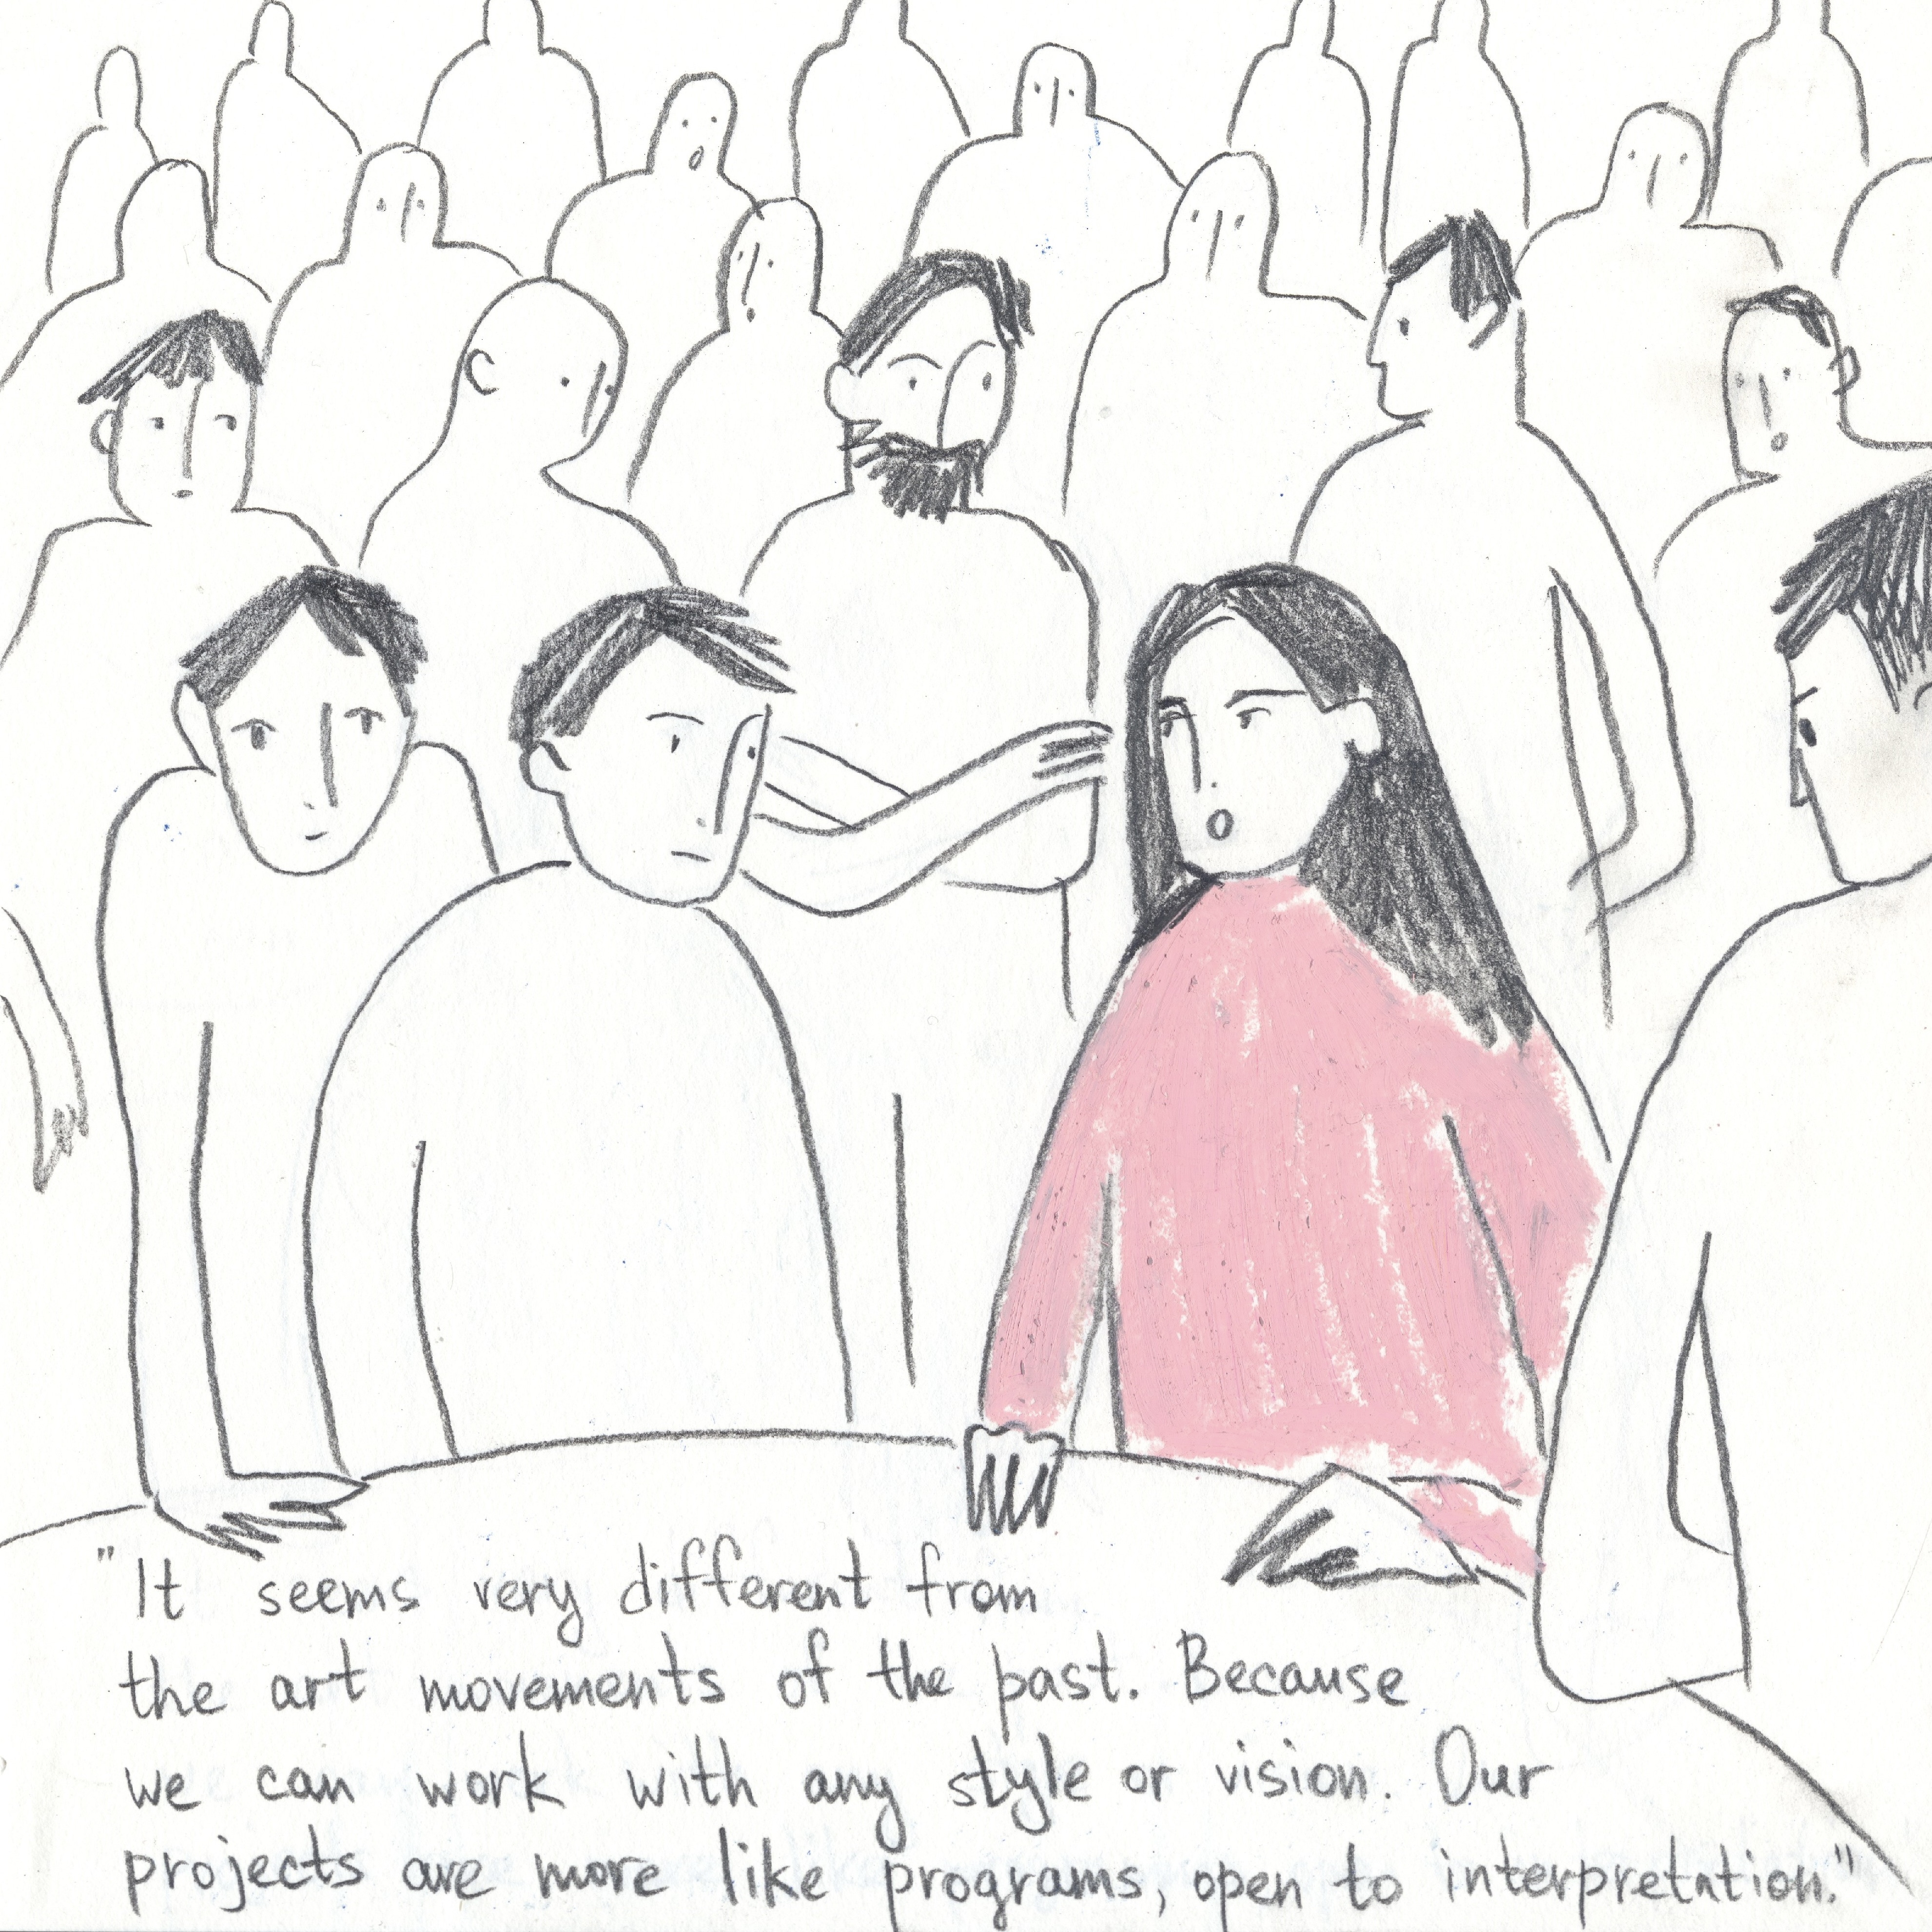 "It seems very different from
the art movements of the past. Because
we can work with any style or vision. Our
projects are more like programs, open to interpretation."